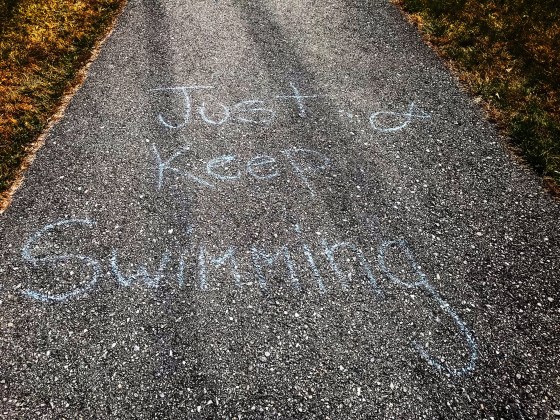 Just
Keep
Swimming